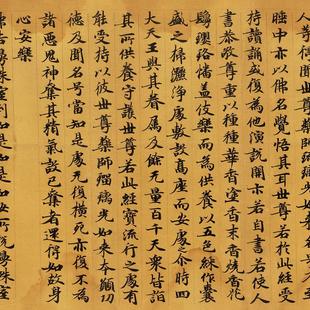 人等得聞世尊藥師瑠璃光如
睡中亦以佛名覺悟其耳世尊若於此經受
持讀誦或復為他演說開示若自書若使人
書恭敬尊重以種種華香塗香末香燒香花
鬘瓔珞幡蓋伎樂而為供養以五色綵作囊
盛之掃灑淨處敷設高座而安處尒時四
大天王與其眷屬及餘無量百千天衆皆詣
其所供養守護世尊若此經寶流行之處有
能受持以彼世尊藥師瑠璃光如來本願功
德及聞名号當知是處无復橫死亦復不為
諸惡鬼神奪其精氣設已奪者還得如故身
心安樂
佛告曼殊室利如是如是如汝所說曼殊室